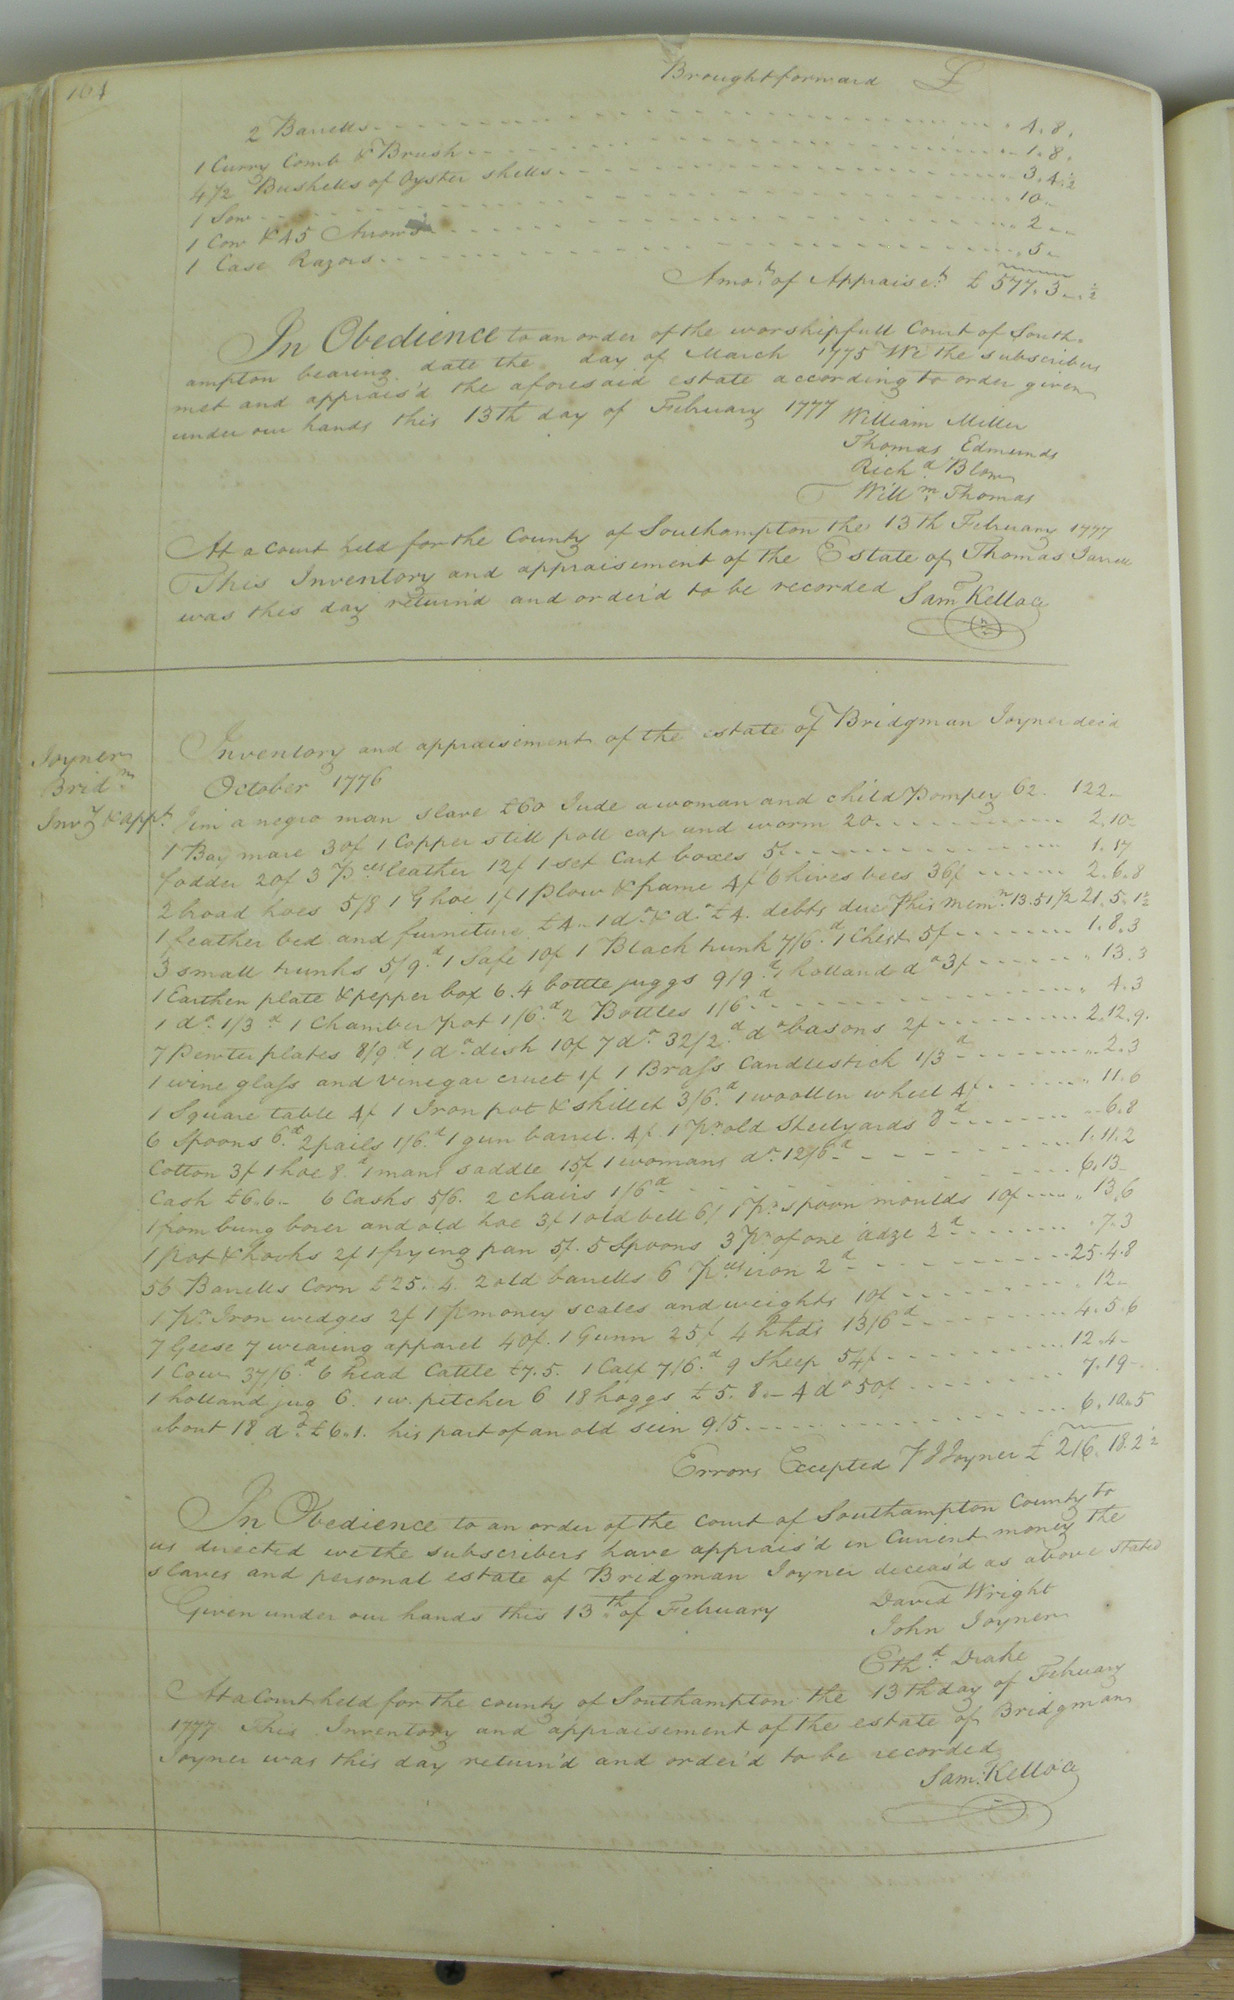 164
Brought forward £
2 Barrells 4.8.
1 Curry Comb & Brush 1.8.
4 1/2 Bushells of Oyster shells 3.4 1/2
1 Sow 10
1 Cow & 45 2
1 Case Razors 5
Amo.t of Appraise.t £ 577.3. 1/2
In Obedience to an order of the worshipfull Court of South-
ampton bearing date the day of March 1775 We the subscribers
met and apprais'd the aforesaid estate according to order given
under our hands this 13th day of February 1777
William Miller
Thomas Edmunds
Rich.d Blow
Will.m Thomas
At a Court held for the County of Southampton the 13th February 1777
This Inventory and appraisement of the Estate of Thomas Jarrell
was this day return'd and order'd to be recorded
Sam.l Kello Cl
Joyner
Brid.m
Inv.y & app.t
Inventory and appraisement of the estate of Bridgman Joyner dec'd
October 1776
Jim a negro man slave £60 Jude a woman and child Pompey 62. 122
1 Bay mare 30/ 1 Copper still pott cap and worm 20 2.10
fodder 20/ 3 P.ces leather 12/ 1 set Cart boxes 5/ 1.17
2 broad hoes 5/8 1 G hoe 1/ 1 plow & frame 4/ 6 hives bees 36/ 2.6.8
1 feather bed and furniture £4. 1 d.o & d.o £4. debts due Mem.m 13.5.1 1/2 21.5.1 1/2
3 small trunks 5/9.d 1 Safe 10/ 1 Black trunk 7/6.d 1 Chest 5/ 1.8.3
1 Earthen plate & pepper box 6. 4 bottle juggs 9/9.d 1 holland d.o 3/ 13.3
1 d.o 1/3.d 1 Chamber pot 1/6.d 2 Bottles 1/6.d 4.3
7 Pewter plates 8/9.d 1 d.o dish 10/ 7 d.o 32/2.d d.o basons 2/ 2.12.9.
1 wine glass and vinegar cruet 1/ 1 Brass Candlestick 1/3.d 2.3
1 Square table 4/ 1 Iron pot & skillet 3/6.d 1 woollen wheel 4/ 11.6
6 Spoons 6.d 2 pails 1/6.d 1 gun barrel. 4/ 1 P.r old Steelyards 8.d 6.8
Cotton 3/ 1 hoe 8.d 1 mans saddle 15/ 1 womans d.o 12/6.d 1.11.2
Cash £6.6. 6 Casks 5/6. 2 chairs 1/6.d 6.13
1 from bung borer and old hoe 3/ 1 old bell 6/ 1 P.r spoon moulds 10/ 13.6
1 Pot & hooks 2/ 1 frying pan 5/. 5 Spoons 3 P.r of one adze 2.d 7.3
56 Barrells Corn £25. 4. 2 old barrells 6 P.ces iron 2.d 25.4.8
1 P.r Iron wedges 2/ 1 P money scales and weights 10/ 12
7 Geese 7 wearing apparel 40/. 1 Gunn 25/ 4 hhds 13/6.d 4.5.6
1 Cow 37/6.d 6 head Cattle £7.5. 1 Calf 7/6.d 9 Sheep 54/ 12.4
1 holland jug 6. 1 w. pitcher 6 18 hoggs £5.8. 4 d.o 50/ 7.19
about 18 d.o £6.1. his part of an old sein 9/5 6.10.5
Errors Excepted P J Joyner £ 216.18.2 1/2
In Obedience to an order of the Court of Southampton County to
us directed we the subscribers have apprais'd in Current money the
slaves and personal estate of Bridgman Joyner deceas'd as above stated
Given under our hands this 13.th of February
David Wright
John Joyner
Eth.d Drake
At a Court held for the county of Southampton the 13th day of February
1777 This Inventory and appraisement of the estate of Bridgman
Joyner was this day return'd and order'd to be recorded
Sam.l Kello Cl